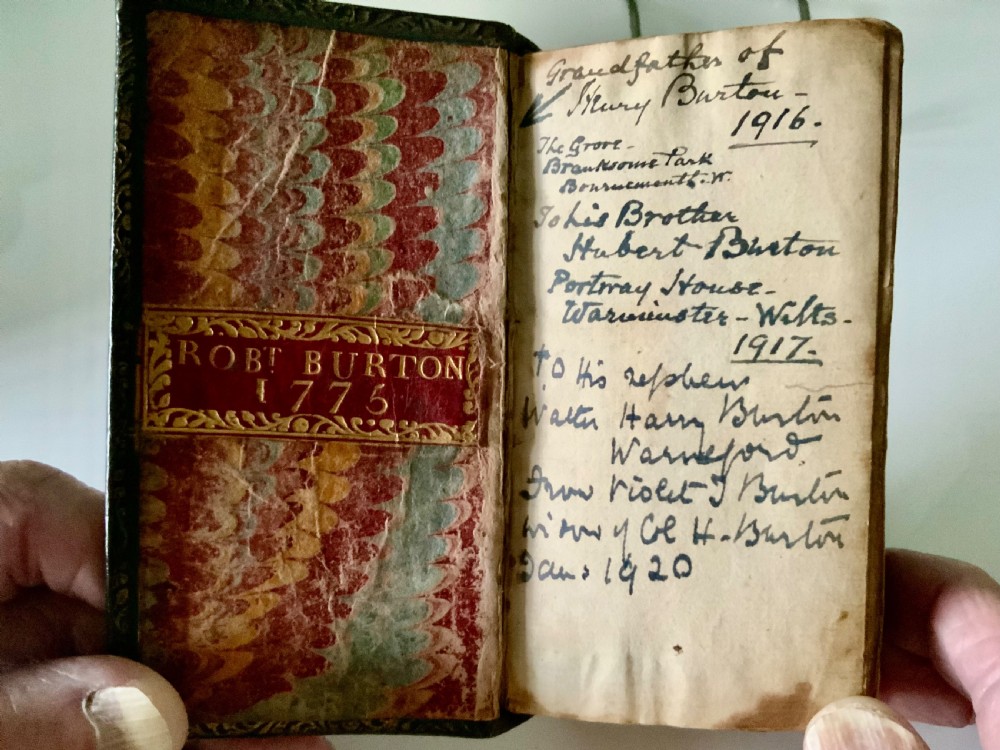 ROBT BURTON
1775
Grandfather of
Henry Burton -
1916.
The Grove -
Branksome Park
Bournemouth. W.
To his Brother
Hubert Burton
Portway House -
Warminster - Wilts -
1917.
to His nephew
Walter Harry Burton
Warneford
From Violet J Burton
widow of Col H. Burton
Jan: 1920